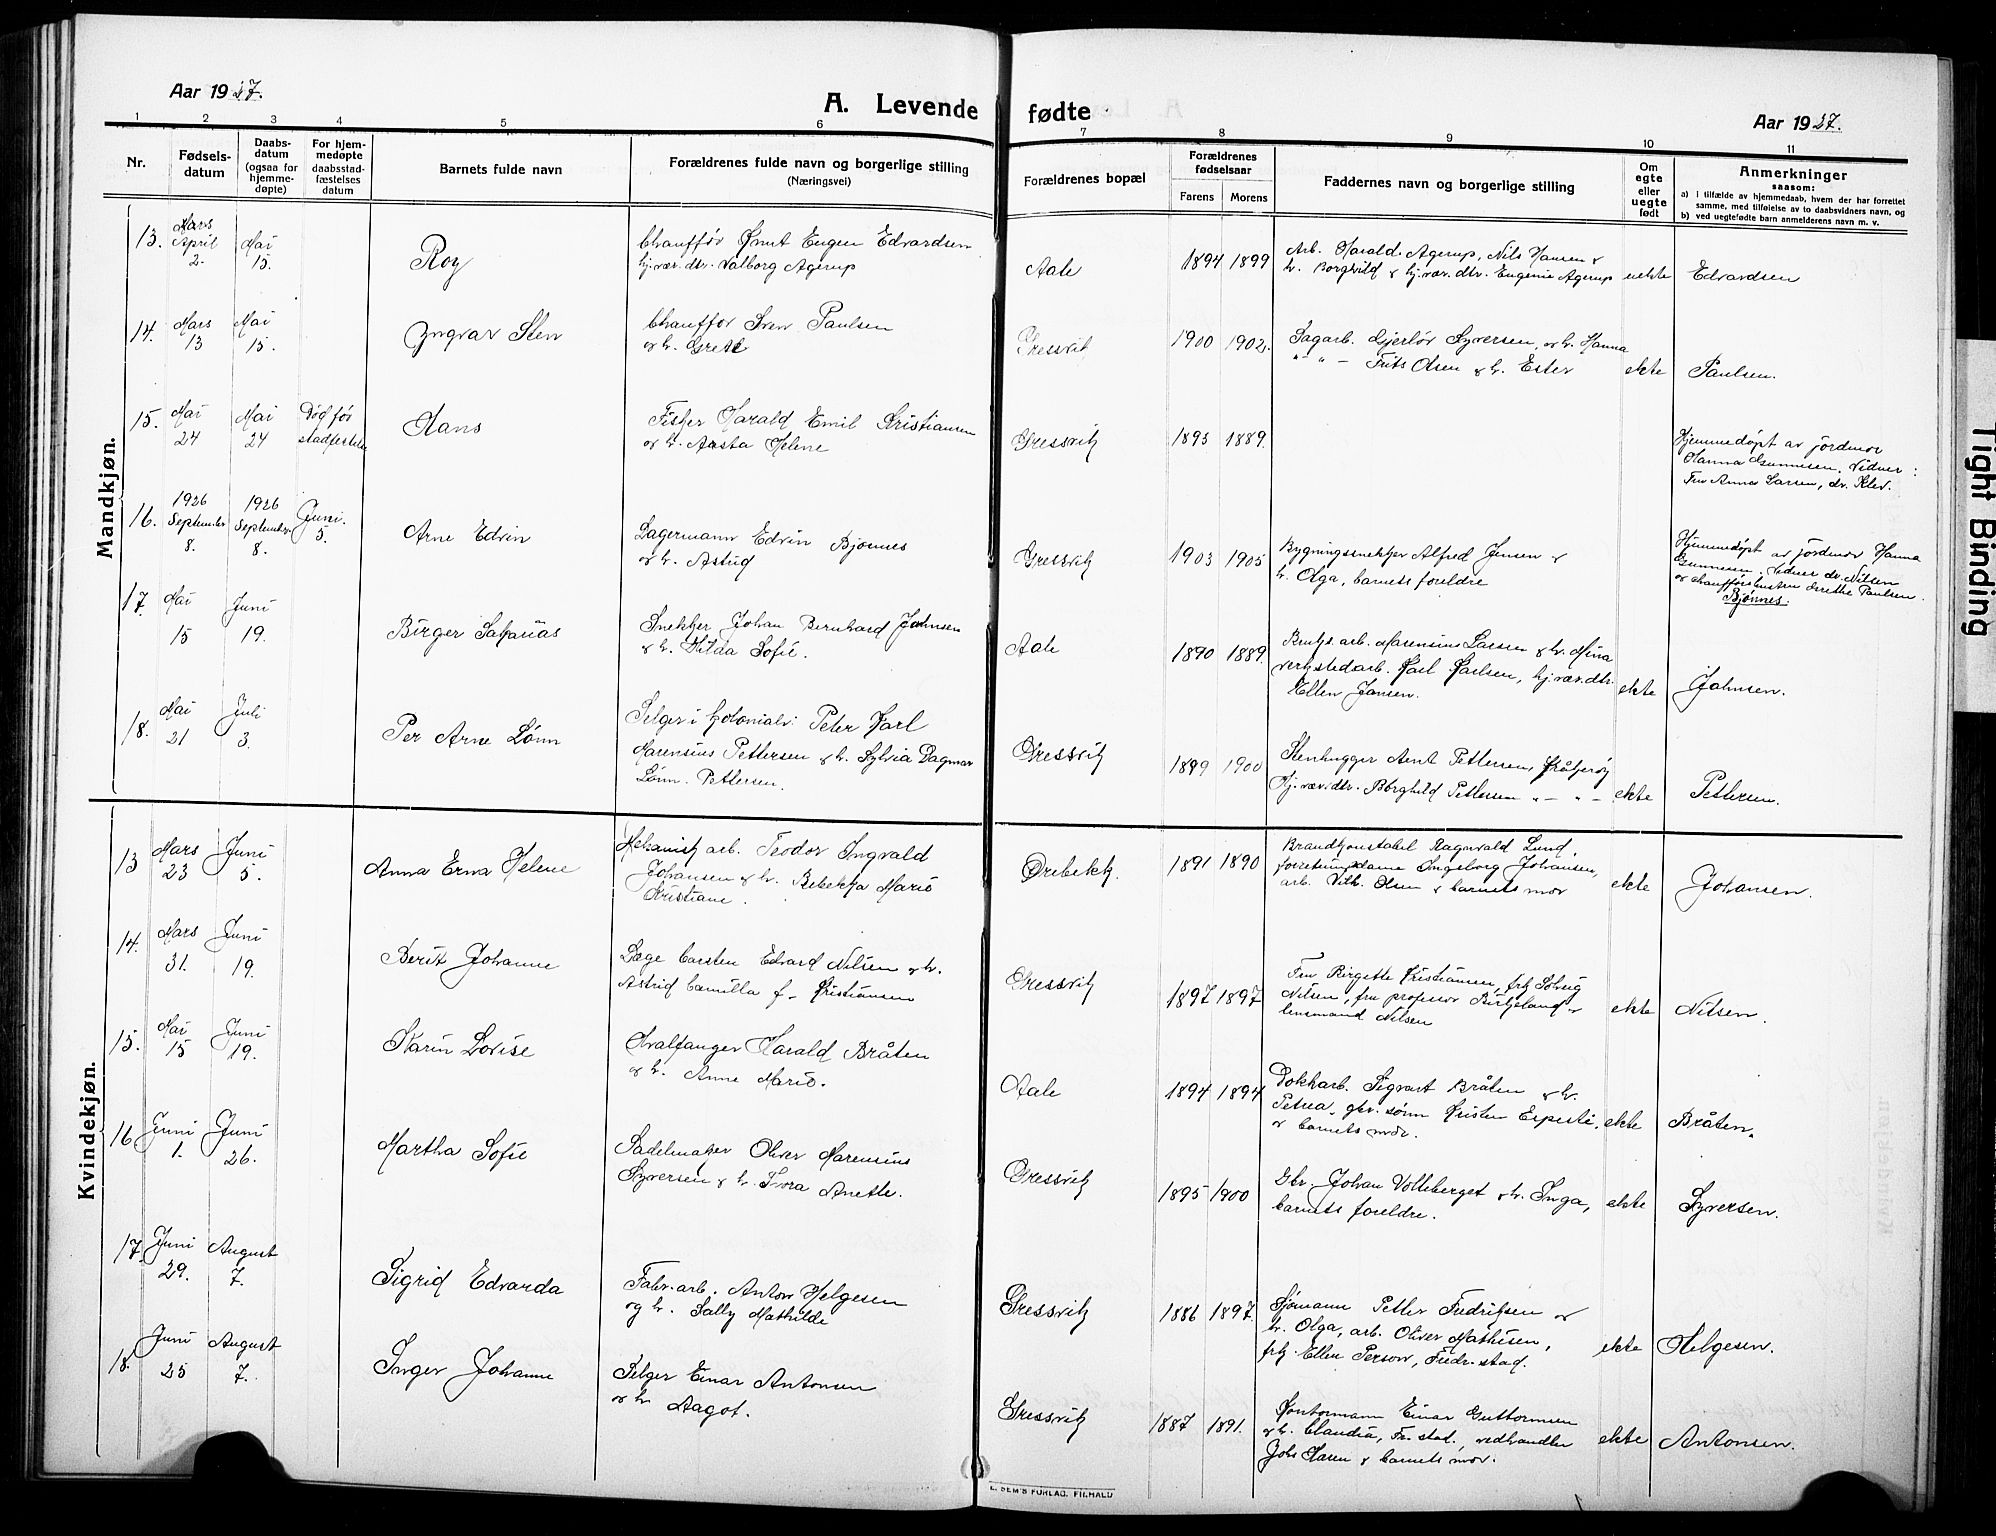 Aar 1927.
A. Levende fødte
Aar 1927.
1 2 3 4 5 6 7 8 9 10 11
Nr.
Fødsels-
datum
Daabs-
datum
(ogsaa for
hjemme-
døpte)
For hjem-
medøpte
daabsstad-
fæstelses
datum
Barnets fulde navn
Forældrenes fulde navn og borgerlige stilling
(Næringsvei)
Forældrenes bopæl
Forældrenes
fødselsaar
Farens Morens
Faddernes navn og borgerlige stilling
Om
egte
eller
uegte
født
Anmerkninger
saasom:
a) i tilfælde av hjemmedaab, hvem der har forrettet
samme, med tilføielse av to daabsvidners navn, og
b) ved uegtefødte barn anmelderens navn m. v.
Mandkjøn.
13. April 2. Mai 15. Roy
Chauffør Knut Eugen Edvardsen
hj.vær. dtr. Valborg Agerup
Aale 1894 1899
Arb. Harald Agerup, Nils Hansen &
h. Borghild & hj.vær. dtr. Eugenie Agerup
uekte Edvardsen
14. Mars 13 Mai 15. Yngvar Sten
Chauffør Sven Paulsen
og h. Grete
Gressvik 1900 1902.
Sagarb. Gjerløv Syversen, og h. Hanna
" - " - Frits Olsen & h. Ester
ekte Paulsen.
15. Mai 24 Mai 24 Død før
stadfestelse
Hans
Fisker Harald Emil Kristiansen
og h. Aasta Helene
Gressvik 1893 1889.
Hjemmedøpt av jordmor
Hanna Gunnesen. Vidner:
Fru Anna Larsen, dr. Klev.
16. 1926 September 8. 1926 September 8. Juni 5. Arne Edvin
Lagermann Edvin Bjønnes
og h. Astrid
Gressvik 1903 1905
Bygningssnekker Alfred Jensen &
h. Olga, barnets foreldre
Hjemmedøpt av jordmor Hanna
Gunnesen. Vidner dr. Nilsen
og chaufførhustru Grethe Paulsen.
Bjønnes.
17. Mai 15 Juni 19. Birger
Snekker Johan Bernhard Johnsen
& h. Hilda Sofie.
Aale 1890 1889.
Marensius Larsen & h. Mina
verkstedarb. Karl Karlsen, hj.vær.dtr.
Ellen Jansen.
ekte Johnsen.
18. Mai 21 Juli 3. Per Arne Lønn
Selger i kolonialv. Peter Karl
Marensius Pettersen & h. Sylvia Dagmar
Lønn-Pettersen.
Gressvik 1899 1900
Stenhugger Arnt Pettersen, Kråkerøy
Hj.vær.dtr. Borghild Pettersen " - " -
ekte Pettersen.
Kvindekjøn.
13 Mars 23 Juni 5. Anna Erna Helene
Mekanisk arb. Teodor Ingvald
Johansen & h. Rebekka Marie
Kristiane.
Ørebekk. 1891 1890
Brandkonstabel Ragnvald Lund,
Ingeborg Johansen,
arb. Vilh. Olsen & barnets mor
ekte Johansen.
14. Mars 31. Juni 19. Berit Johanne
Læge Carsten Edvard Nilsen & h.
Astrid Camilla f. Kristiansen
Gressvik 1897 1897
Fru Birgette Kristiansen, frk Solveig
Nilsen, fru professor Birkeland &
lensmand Nilsen
ekte Nilsen.
15. Mai 15 Juni 19. Karin Lovise
Hvalfanger Harald Bråten
og h. Anne Marie.
Aale 1894 1894
Dokkarb. Sigvart Bråten & h.
Petrea, gbr. sønn Kristen
& barnets mor.
ekte Bråten.
16 Juni 1. Juni 26. Martha Sofie
Sadelmaker Oliver Marensius
Syversen & h. Tora Anette.
Gressvik 1895 1900
Gbr. Johan Volleberget & h. Inga,
barnets foreldre.
ekte Syversen.
17. Juni 29. August 7. Sigrid Edvarda
Fabr. arb. Anton Helgesen
og h. Sally Mathilde
Gressvik 1886 1897.
Sjømann Petter Fredriksen &
h. Olga, arb. Oliver Mathisen,
frk. Ellen Person, Fredr.stad.
ekte Helgesen.
18. Juni 25 August 7. Inger Johanne
Selger Einar Antonsen
og h Aagot.
Gressvik 1887 1891.
Kontormann Einar Guttormsen
og h. Claudia, Fr.stad., vedhandler
Johs Hasen & barnets mor.
ekte Antonsen.
Tight Binding